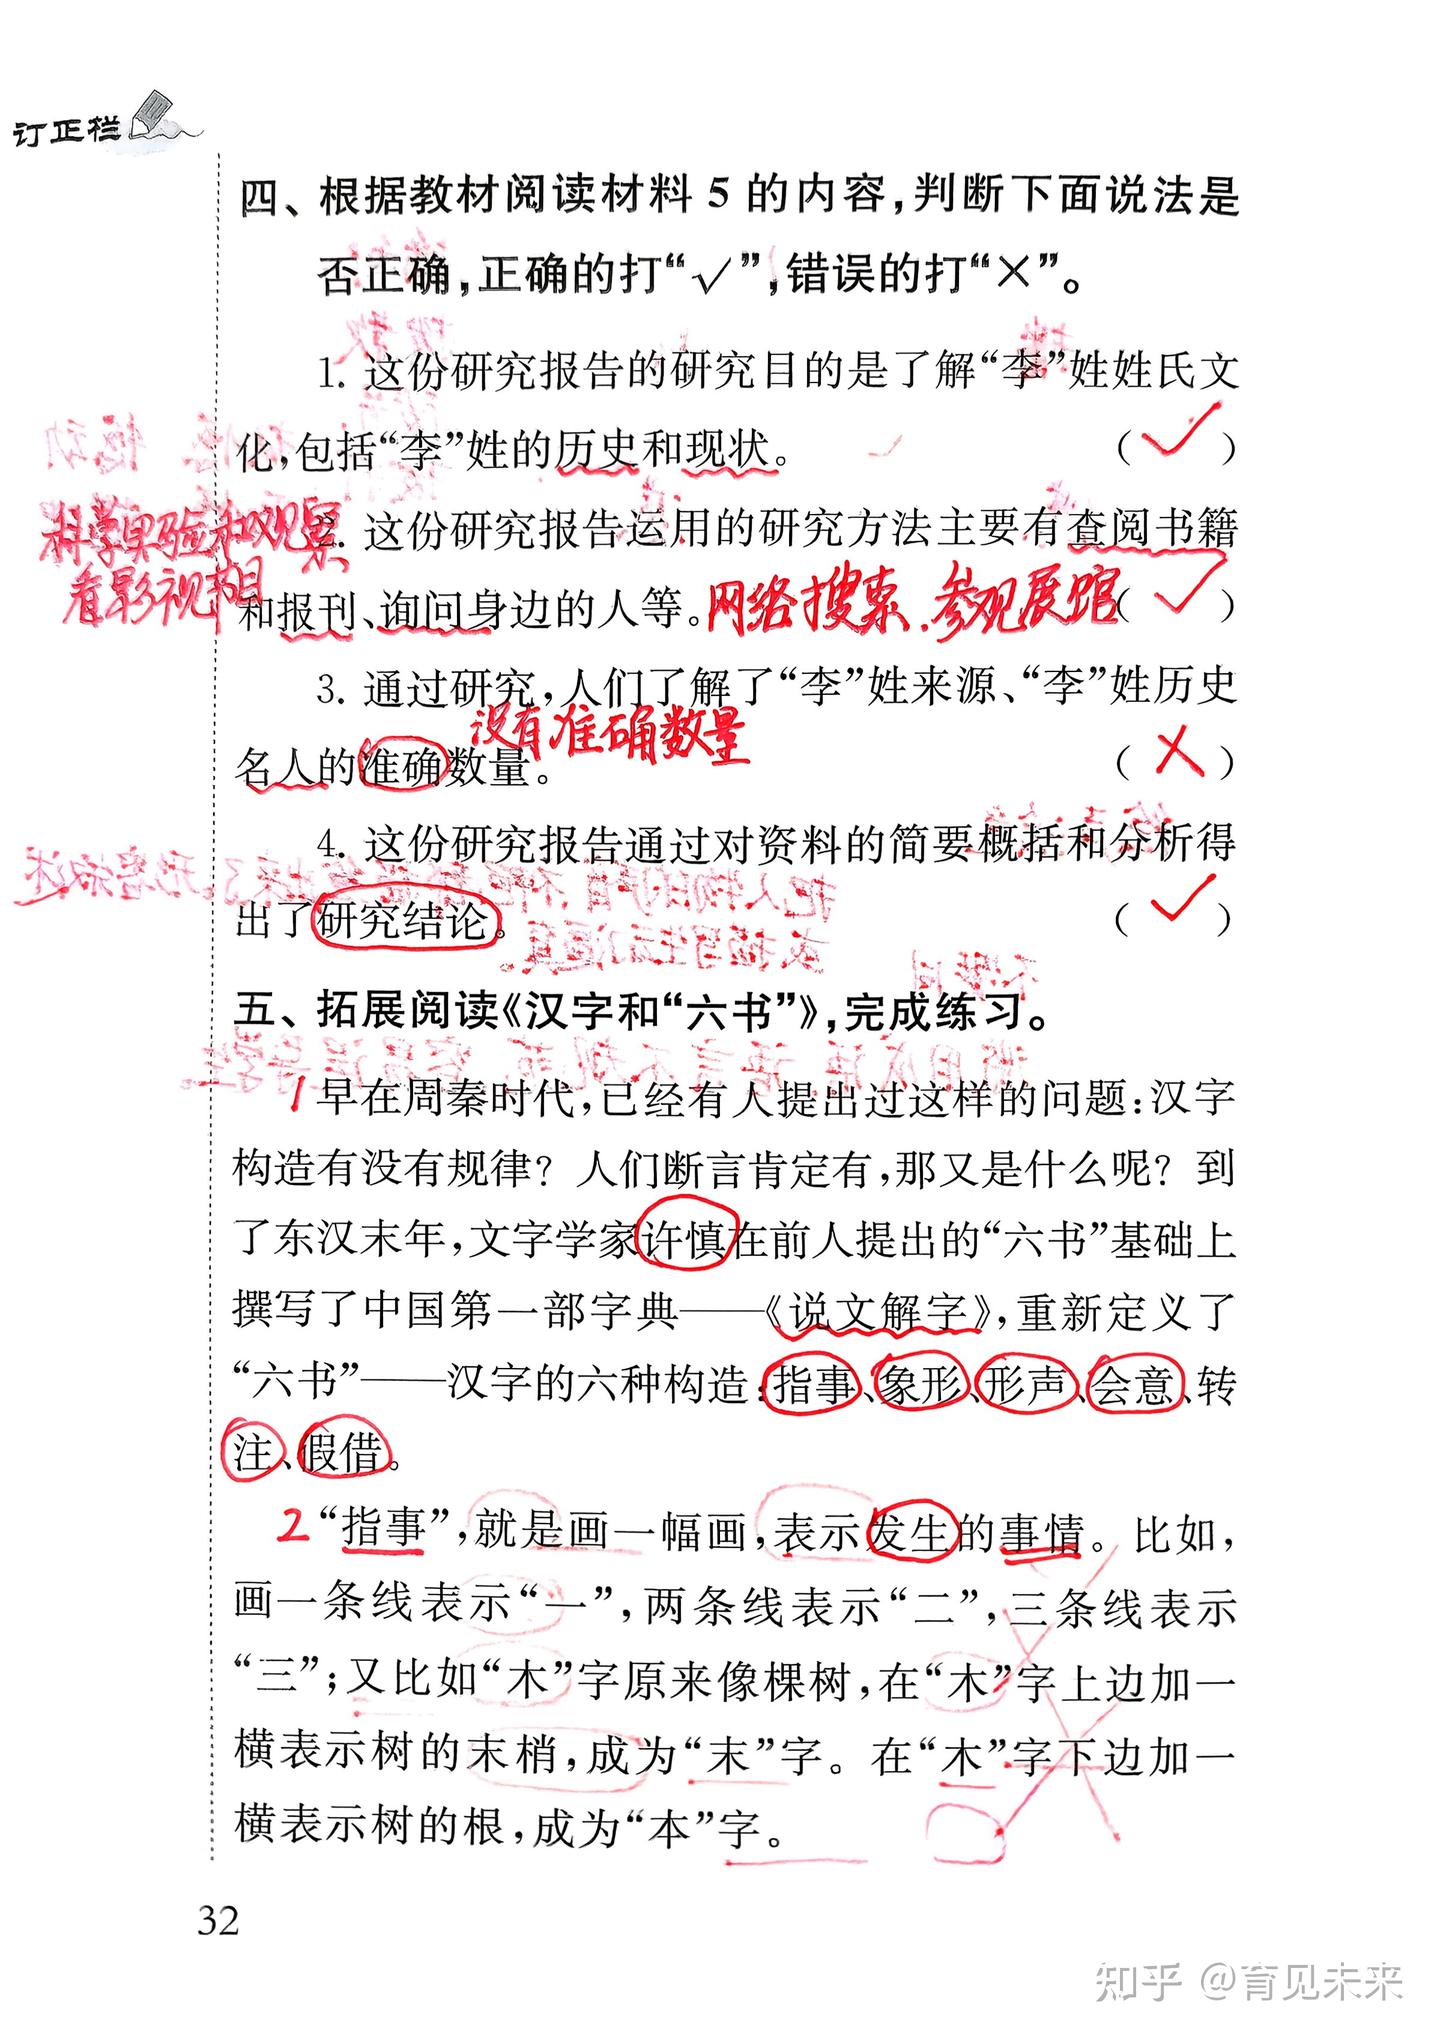 订正栏
四、根据教材阅读材料 5 的内容,判断下面说法是
否正确,正确的打“√”,错误的打“×”。
1. 这份研究报告的研究目的是了解“李”姓姓氏文
化,包括“李”姓的历史和现状。 (√)
科学实验和观察
2. 这份研究报告运用的研究方法主要有查阅书籍
看影视节目
和报刊、询问身边的人等。网络搜索.参观展馆(√)
3. 通过研究,人们了解了“李”姓来源、“李”姓历史
没有准确数量
名人的准确数量。 (×)
4. 这份研究报告通过对资料的简要概括和分析得
出了研究结论。 (√)
五、拓展阅读《汉字和“六书”》,完成练习。
1 早在周秦时代,已经有人提出过这样的问题:汉字
构造有没有规律?人们断言肯定有,那又是什么呢?到
了东汉末年,文字学家许慎在前人提出的“六书”基础上
撰写了中国第一部字典——《说文解字》,重新定义了
“六书”——汉字的六种构造:指事、象形、形声、会意、转
注、假借。
2 “指事”,就是画一幅画,表示发生的事情。比如,
画一条线表示“一”,两条线表示“二”,三条线表示
“三”;又比如“木”字原来像棵树,在“木”字上边加一
横表示树的末梢,成为“末”字。在“木”字下边加一
横表示树的根,成为“本”字。
32
知乎 @育见未来